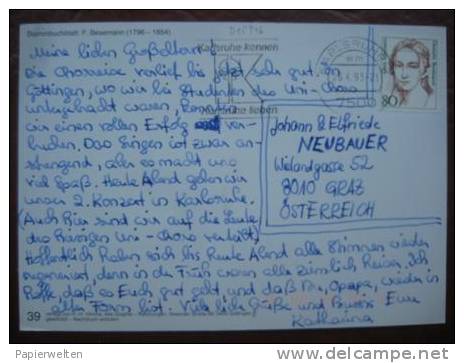 Stammbuchblatt: F. Besemann (1796 - 1854)
Meine lieben Großeltern!
Die Chorreise verlief bis jetzt sehr gut. In
Göttingen, wo wir bei Studenten des Uni-Chors
untergebracht waren, konnten
wir einen vollen Erfolg ver-
buchen. Das Singen ist zwar an-
strengend, aber es macht uns
viel Spaß. Heute Abend geben wir
unser 2. Konzert in Karlsruhe.
(Auch hier sind wir auf die Leute
des hiesigen Uni-Chors verteilt)
Hoffentlich haben sich bis heute Abend alle Stimmen wieder
regeneriert, denn in der Früh waren alle ziemlich heiser. Ich
hoffe, daß es Euch gut geht, und daß Du, Opapa, wieder in
alter Form bist. Viele liebe Grüße und Bussis Eure
Katharina
39
Karlsruhe kennen
Karlsruhe lieben
KARLSRUHE
7500
80
Johann & Elfriede
NEUBAUER
Wielandgasse 52
8010 GRAZ
ÖSTERREICH
Papierwelten
http://www.delcampe.net